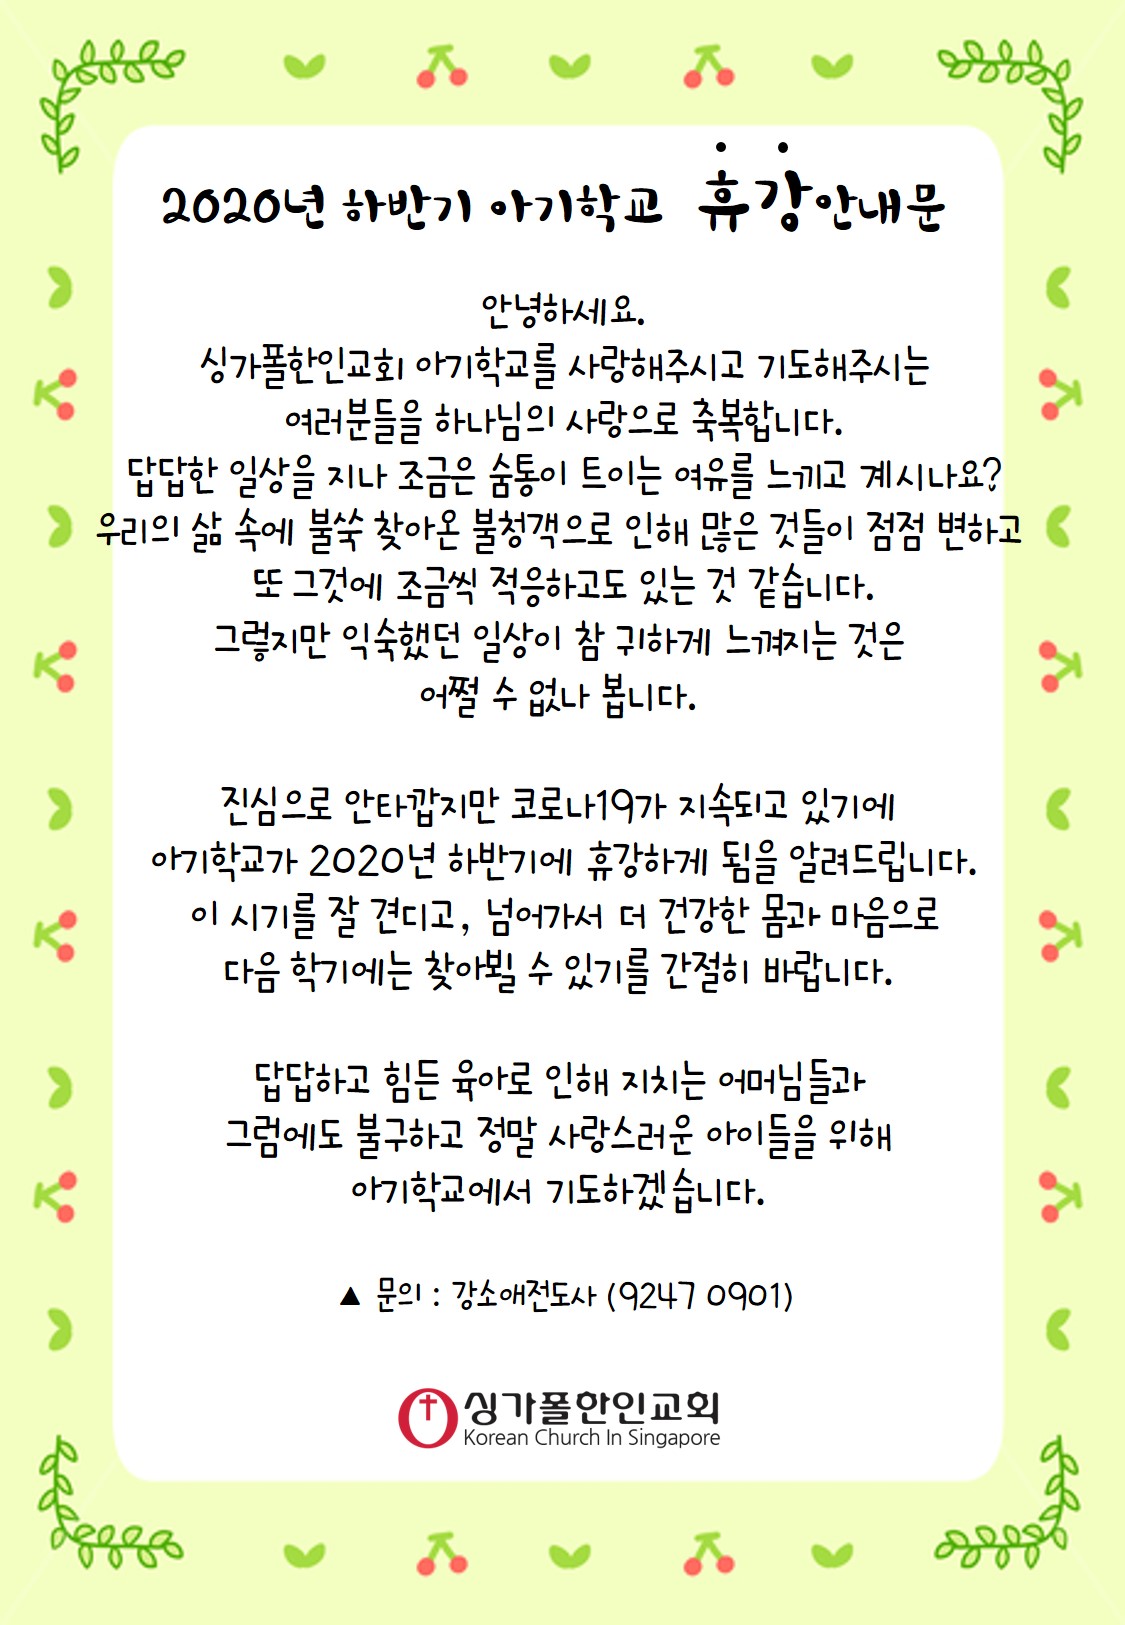 2020년 하반기 아기학교 휴강안내문
안녕하세요.
싱가폴한인교회 아기학교를 사랑해주시고 기도해주시는
여러분들을 하나님의 사랑으로 축복합니다.
답답한 일상을 지나 조금은 숨통이 트이는 여유를 느끼고 계시나요?
우리의 삶 속에 불쑥 찾아온 불청객으로 인해 많은 것들이 점점 변하고
또 그것에 조금씩 적응하고도 있는 것 같습니다.
그렇지만 익숙했던 일상이 참 귀하게 느껴지는 것은
어쩔 수 없나 봅니다.
진심으로 안타깝지만 코로나19가 지속되고 있기에
아기학교가 2020년 하반기에 휴강하게 됨을 알려드립니다.
이 시기를 잘 견디고, 넘어가서 더 건강한 몸과 마음으로
다음 학기에는 찾아뵐 수 있기를 간절히 바랍니다.
답답하고 힘든 육아로 인해 지치는 어머님들과
그럼에도 불구하고 정말 사랑스러운 아이들을 위해
아기학교에서 기도하겠습니다.
▲ 문의 : 강소애전도사 (9247 0901)
싱가폴한인교회
Korean Church In Singapore